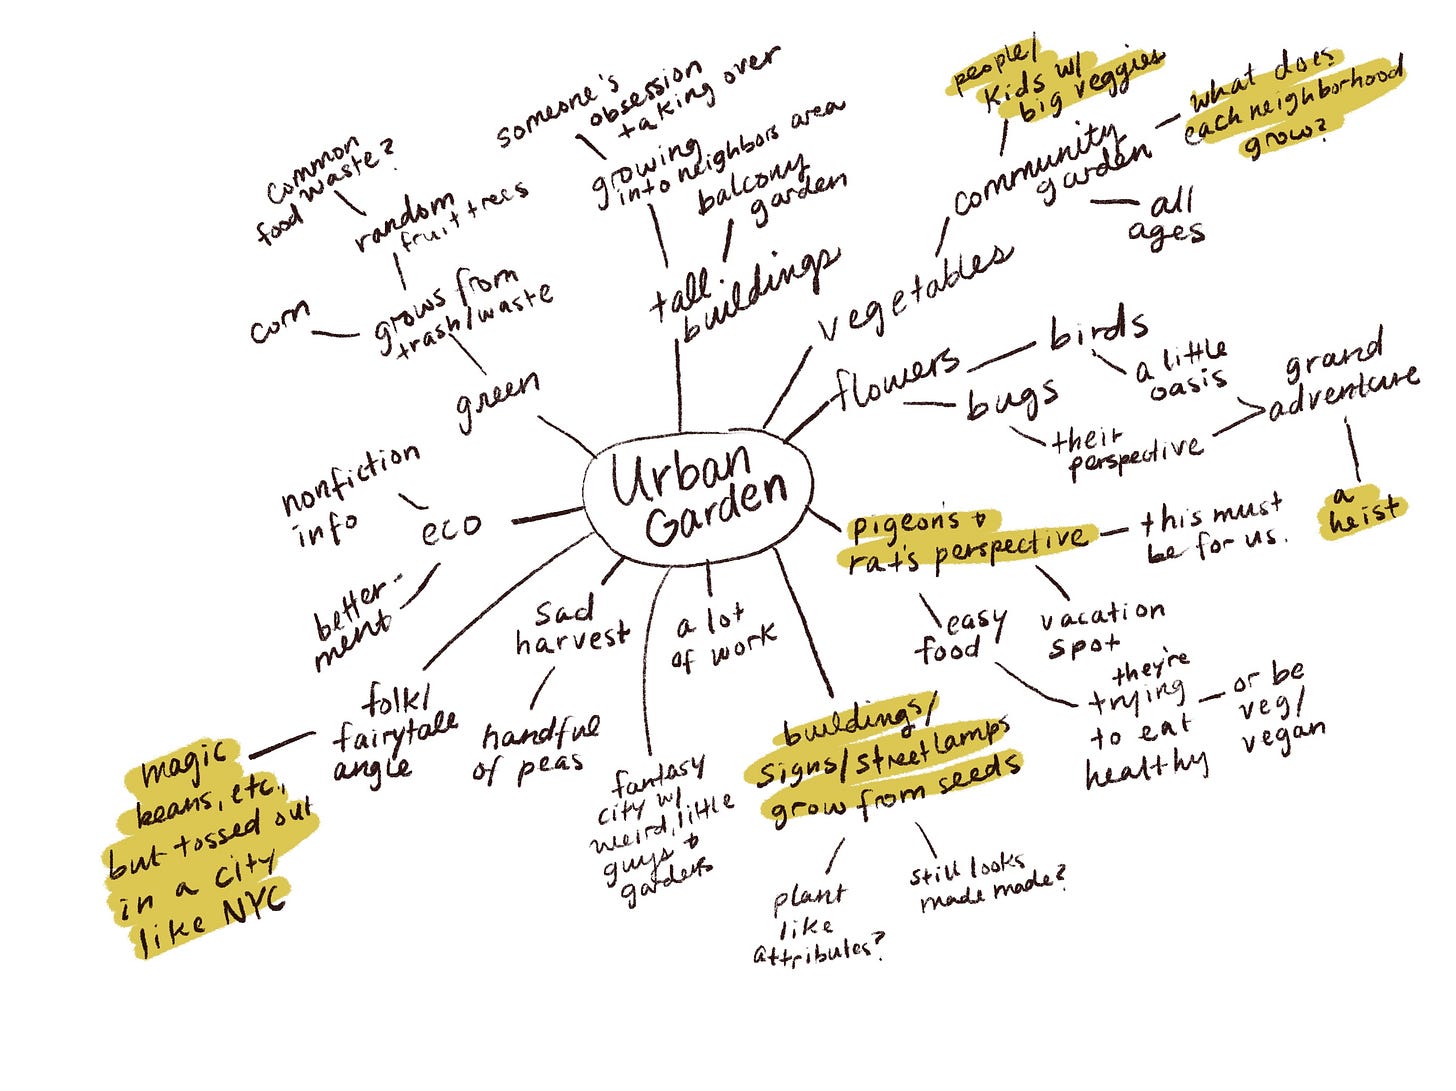 Urban
Garden
tall
buildings
growing
into neighbors area
someone's
obsession
taking over
balcony
garden
vegetables
community
garden
people/
kids w/
big veggies
what does
each neighborhood
grow?
all
ages
flowers
birds
a little
oasis
bugs
their
perspective
grand
adventure
a
heist
pigeons +
rat's perspective
this must
be for us.
vacation
spot
easy
food
they're
trying
to eat
healthy
or be
veg/
vegan
buildings/
signs/streetlamps
grow from seeds
plant
like
attributes?
still looks
made made?
a lot
of work
fantasy
city w/
weird, little
guys +
gardens
sad
harvest
handful
of peas
folk/
fairytale
angle
magic
beans, etc.,
but tossed out
in a city
like NYC
eco
nonfiction
info
better-
ment
green
grows from
trash/waste
corn
random
fruit trees
common
food waste?